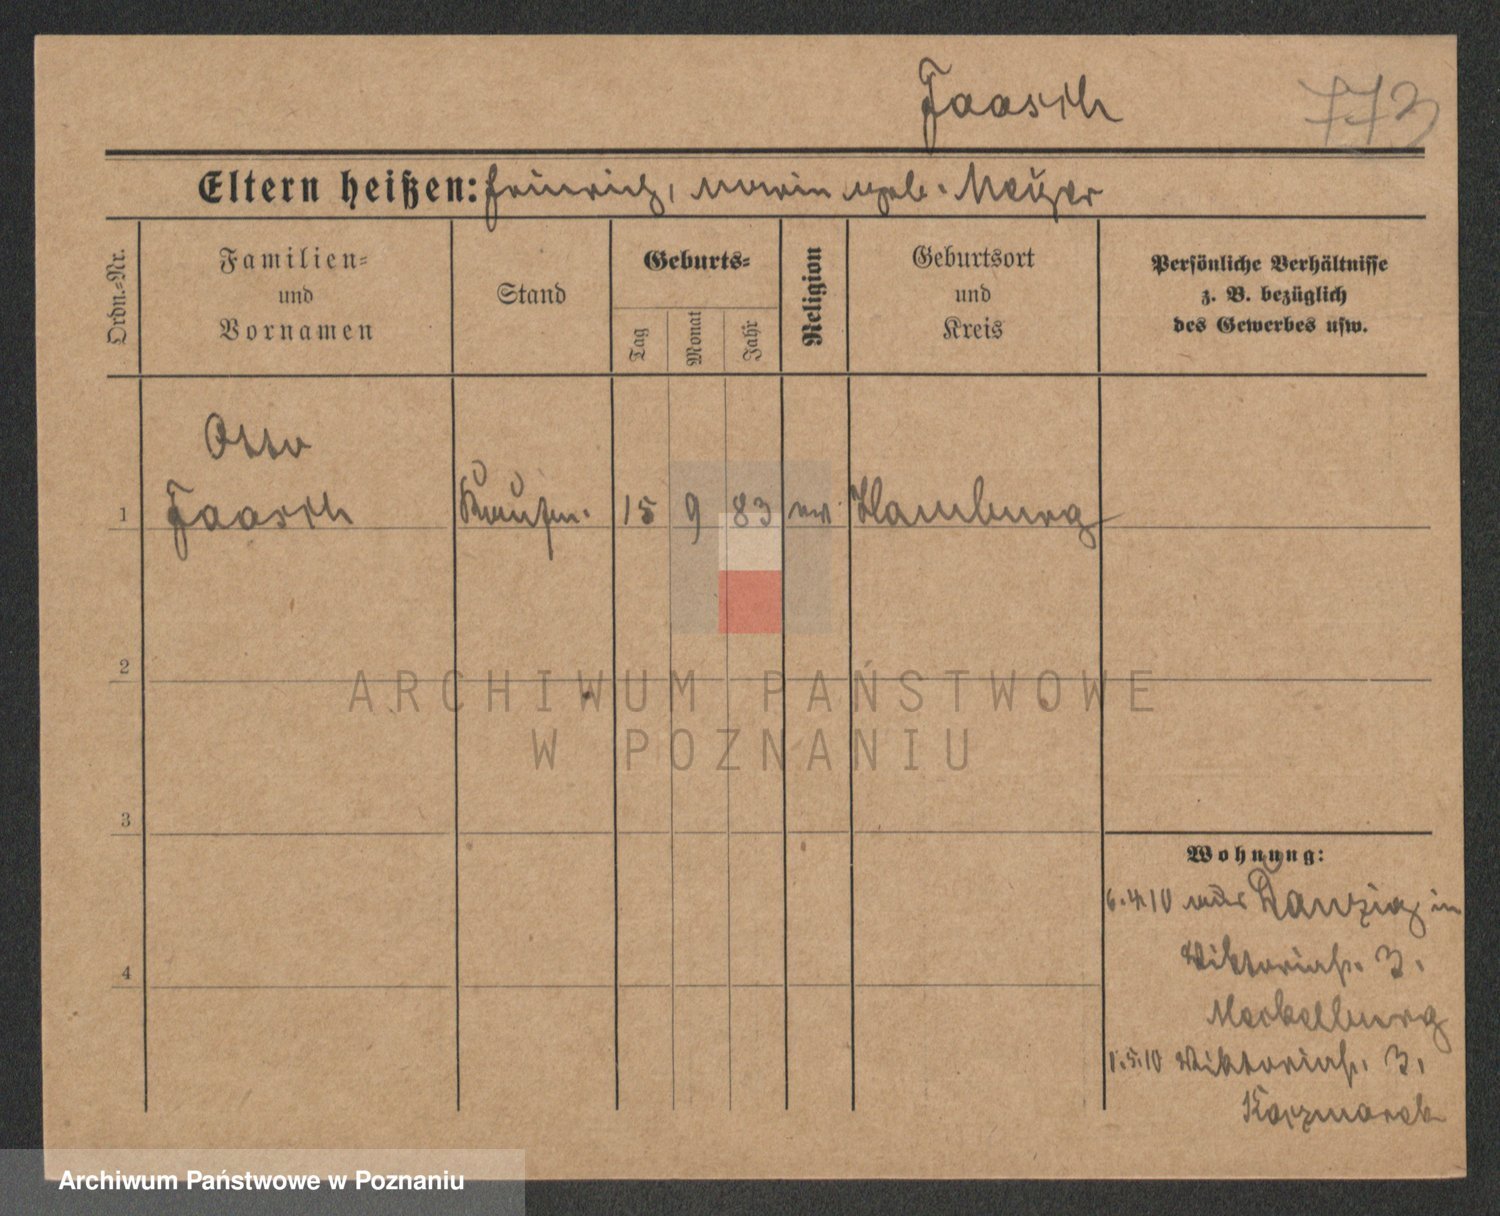 Faasch 773
Eltern heißen: Heinrich, Maria geb. Meyer
Ordn.-Nr.
Familien- und Vornamen
Stand
Geburts-
Tag
Monat
Jahr
Religion
Geburtsort und Kreis
Persönliche Verhältnisse
z. B. bezüglich
des Gewerbes usw.
Otto
1 Faasch Kaufm. 15 9 83 ev. Hamburg
2
ARCHIWUM PAŃSTWOWE
W POZNANIU
3
Wohnung:
6.4.10 aus Danzig in
Viktoriastr. 3.
Meckelburg
4
1.5.10 Viktoriastr. 3.
Kaczmarek
Archiwum Państwowe w Poznaniu